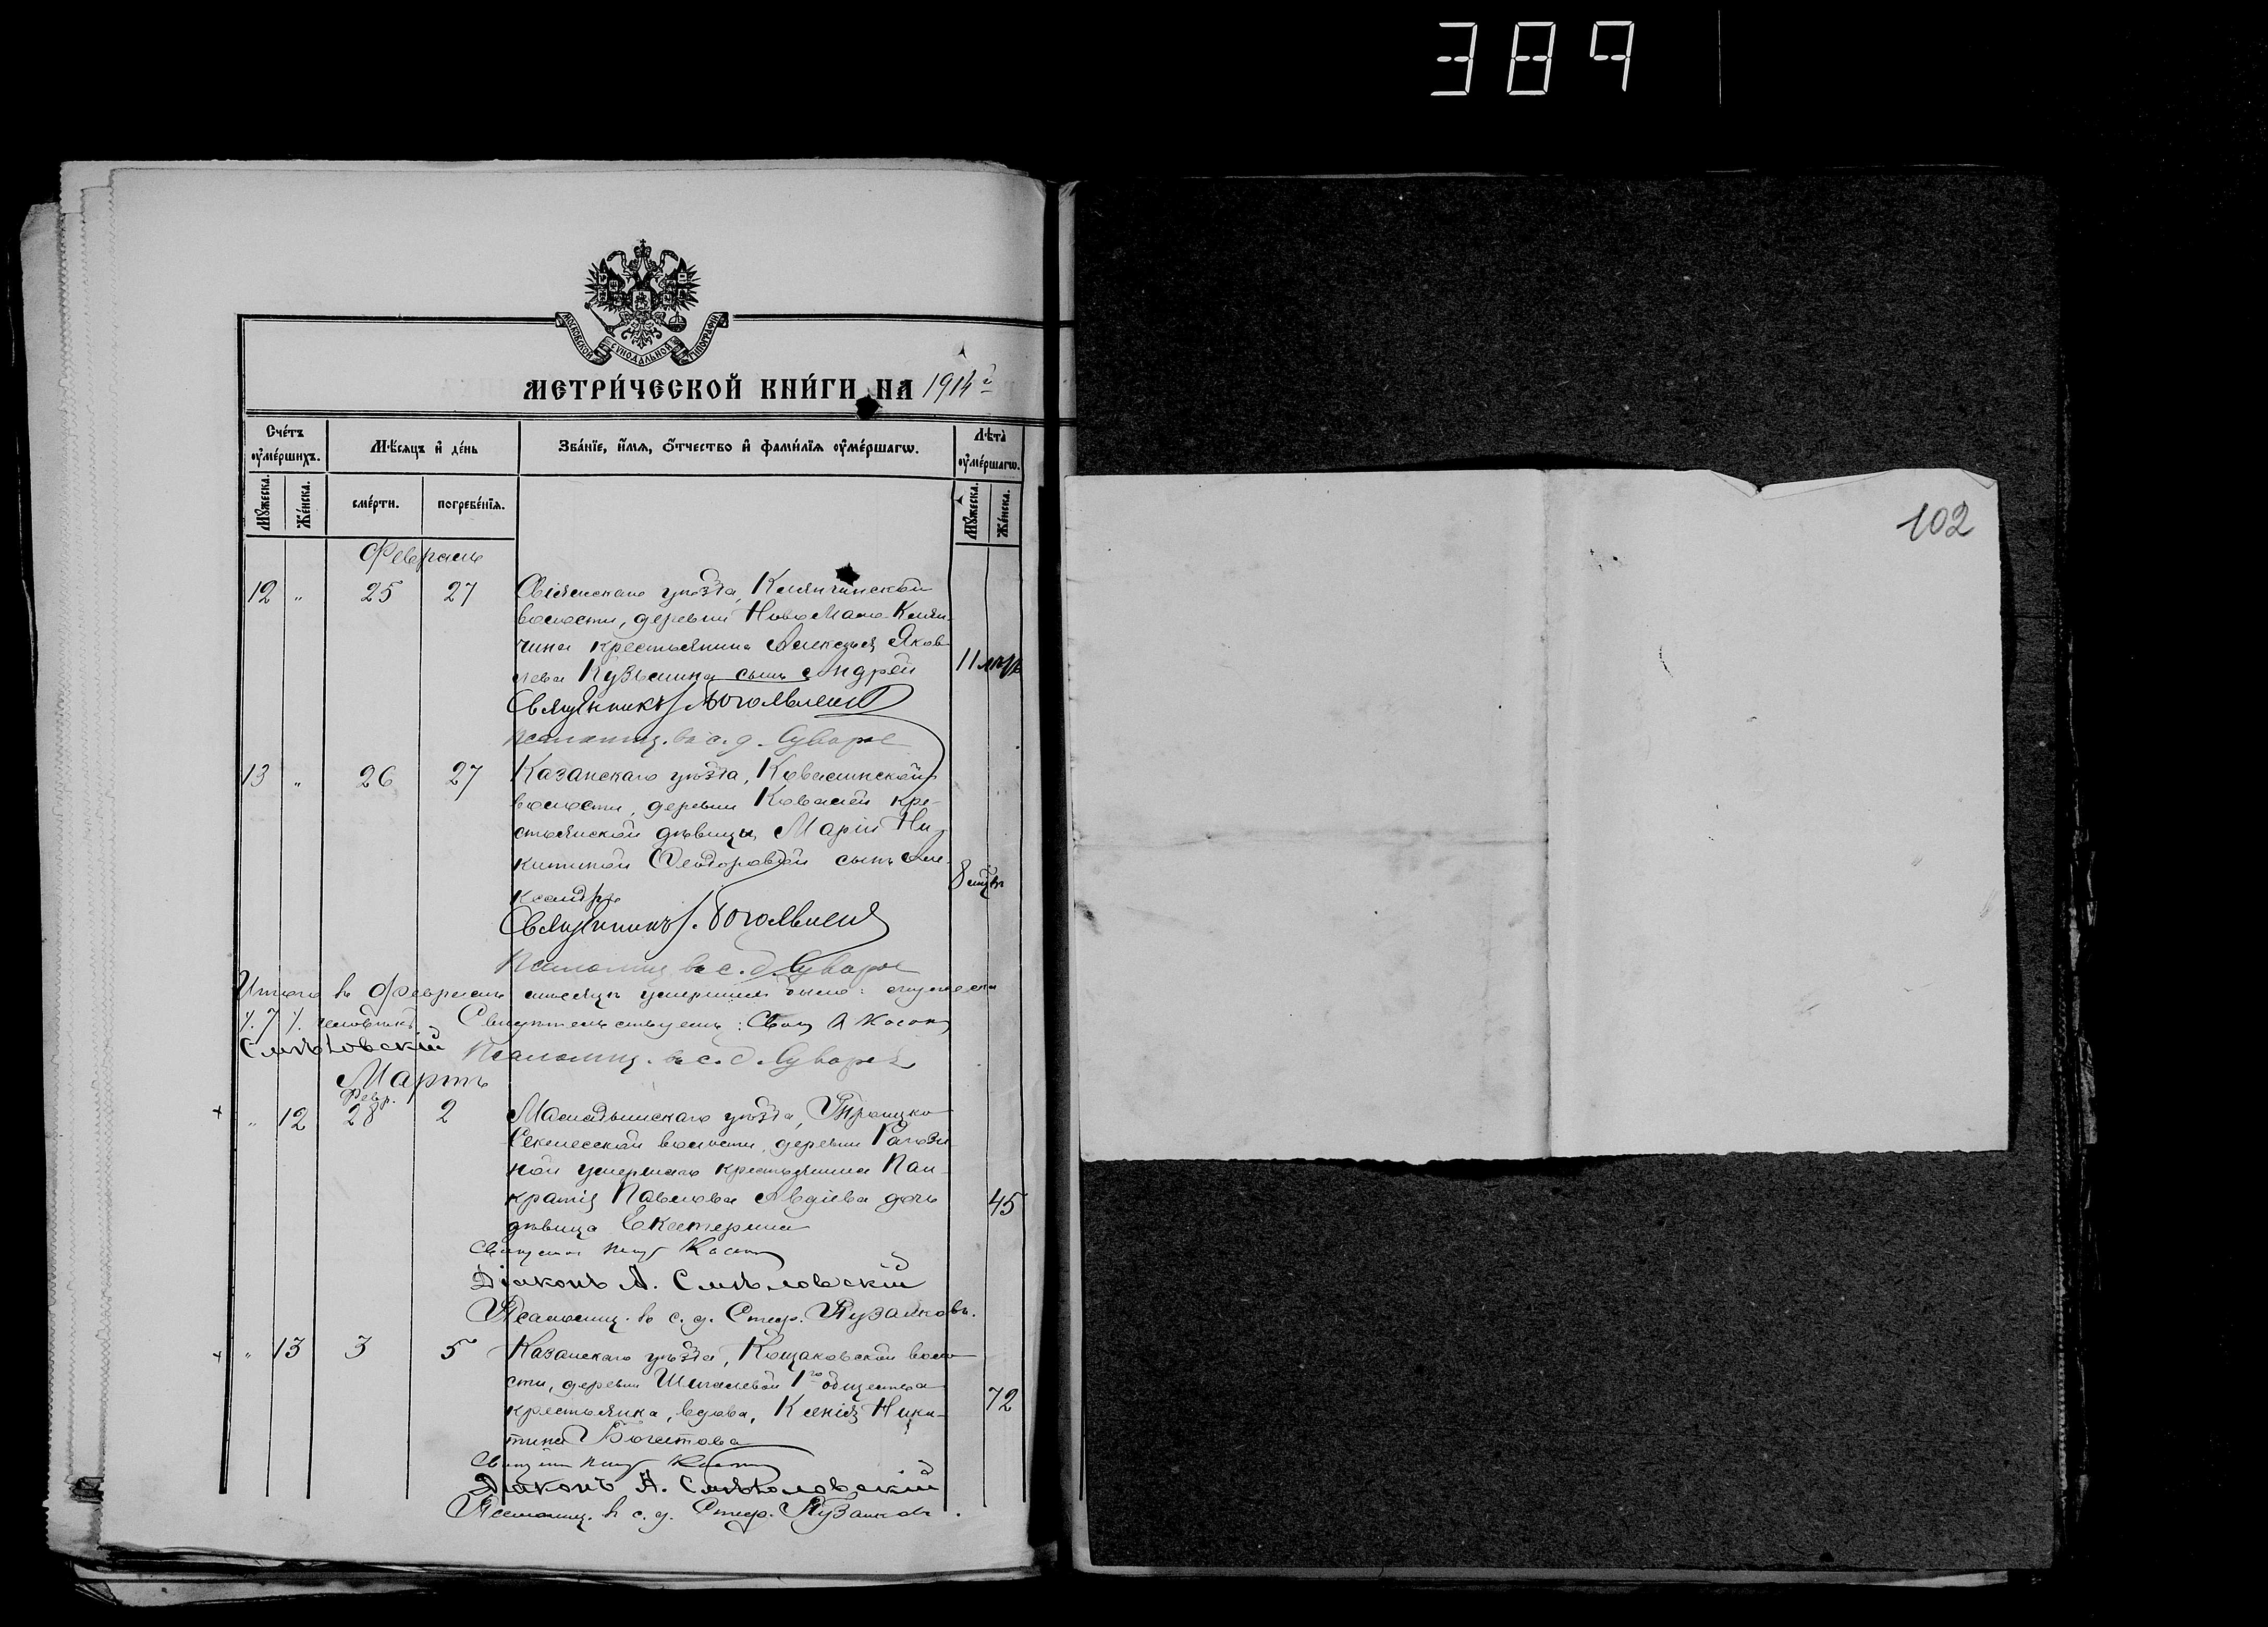 389
МОСКОВСКОЙ СѴНОДАЛЬНОЙ ТИПОГРАФІИ
МЕТРИ́ЧЕСКОЙ КНИ́ГИ НА 1914й
Сче́тъ ᲂу҆ме́ршихъ.
Мѣ́сяцъ и҆ де́нь
Зва́нїе, и҆́мѧ, ѻ҆́тчество и҆ фами́лїѧ ᲂу҆ме́ршагѡ.
Лѣта̀ ᲂу҆ме́ршагѡ.
Мꙋ́жеска.
Же́нска.
сме́рти.
погребе́нїѧ.
Мꙋ́жеска.
Же́нска.
Февраль
12 " 25 27 Свіяжскаго уѣзда, Клянчинской
волости, деревни Ново Мало-Клян-
чина крестьянина Алексѣя Яков-
лева Кузьмина сынъ Андрей 11 мѣс
Священникъ Богоявленс
Псаломщ. въ с. д. Суворов
13 " 26 27 Казанскаго уѣзда, Ковалинской
волости, деревни Ковалей кре-
стьянской дѣвицы Маріи Ни-
китиной Ѳеодоровой сынъ Але-
ксандръ 8 мѣс
Священникъ Богоявленс
Псаломщ. въ с. д. Суворов
Итого въ Февралѣ мѣсяцѣ умершихъ было: мужеска
7 человѣкъ. Свидѣтельствуемъ: Свящ
Смѣловскій Псаломщ. въ с. д. Суворов
Мартъ
Февр.
" 12 28 2 Мамадышскаго уѣзда, Троицко
волости, деревни
ной умершаго крестьянина Пан-
кратія Павлова Авдіева дочь 45
дѣвица Екатерина
Діаконъ А. Смѣловскій
Псаломщ. въ с. д. Стеф. Пузанковъ.
" 13 3 5 Казанскаго уѣзда, Кощаковской воло-
сти, деревни Шигалевой 1го общества
крестьянка, вдова, Ксенія Ники- 72
тина
Діаконъ А. Смѣловскій
Псаломщ. въ с. д. Стеф. Пузанковъ.
102